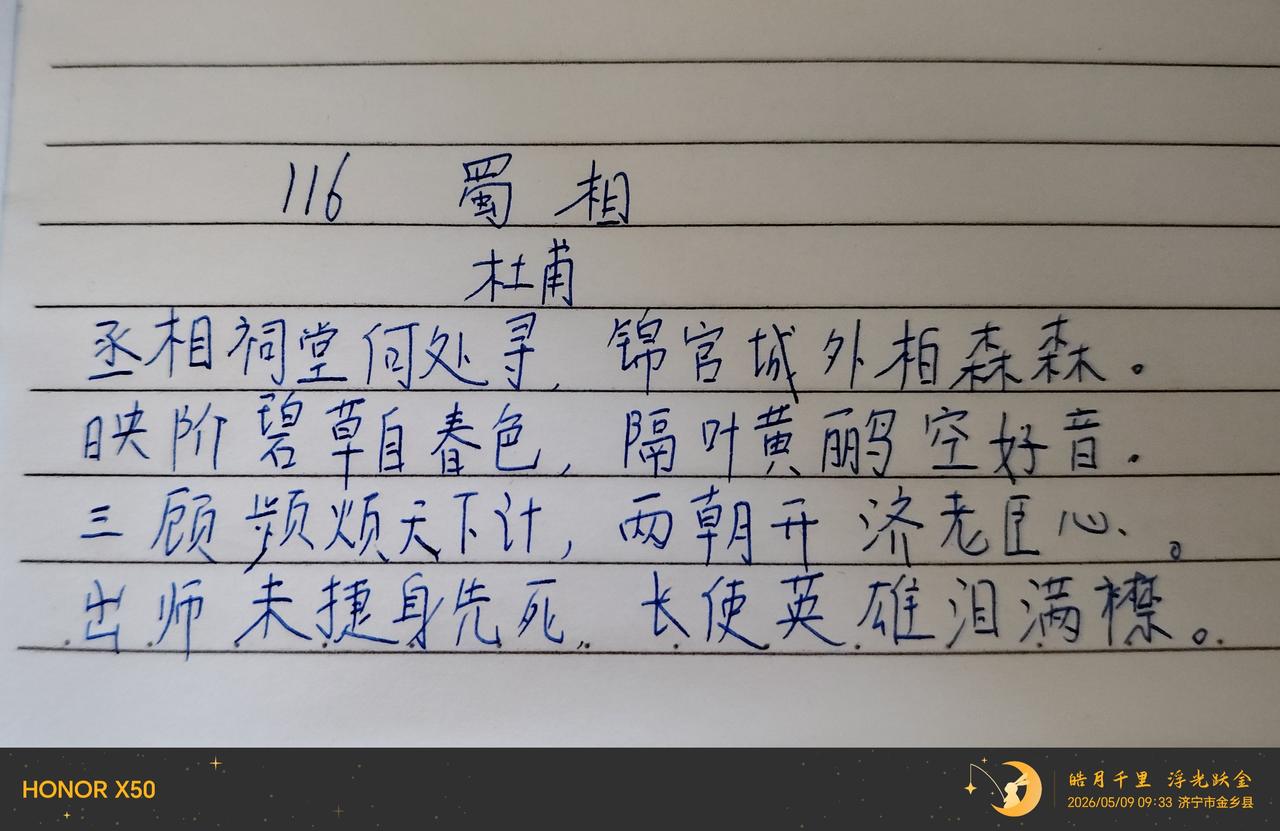 116 蜀相
杜甫
丞相祠堂何处寻，锦官城外柏森森。
映阶碧草自春色，隔叶黄鹂空好音.
三顾频烦天下计，两朝开济老臣心。
出师未捷身先死，长使英雄泪满襟。
HONOR X50
皓月千里 浮光跃金
2026/05/09 09:33 济宁市金乡县